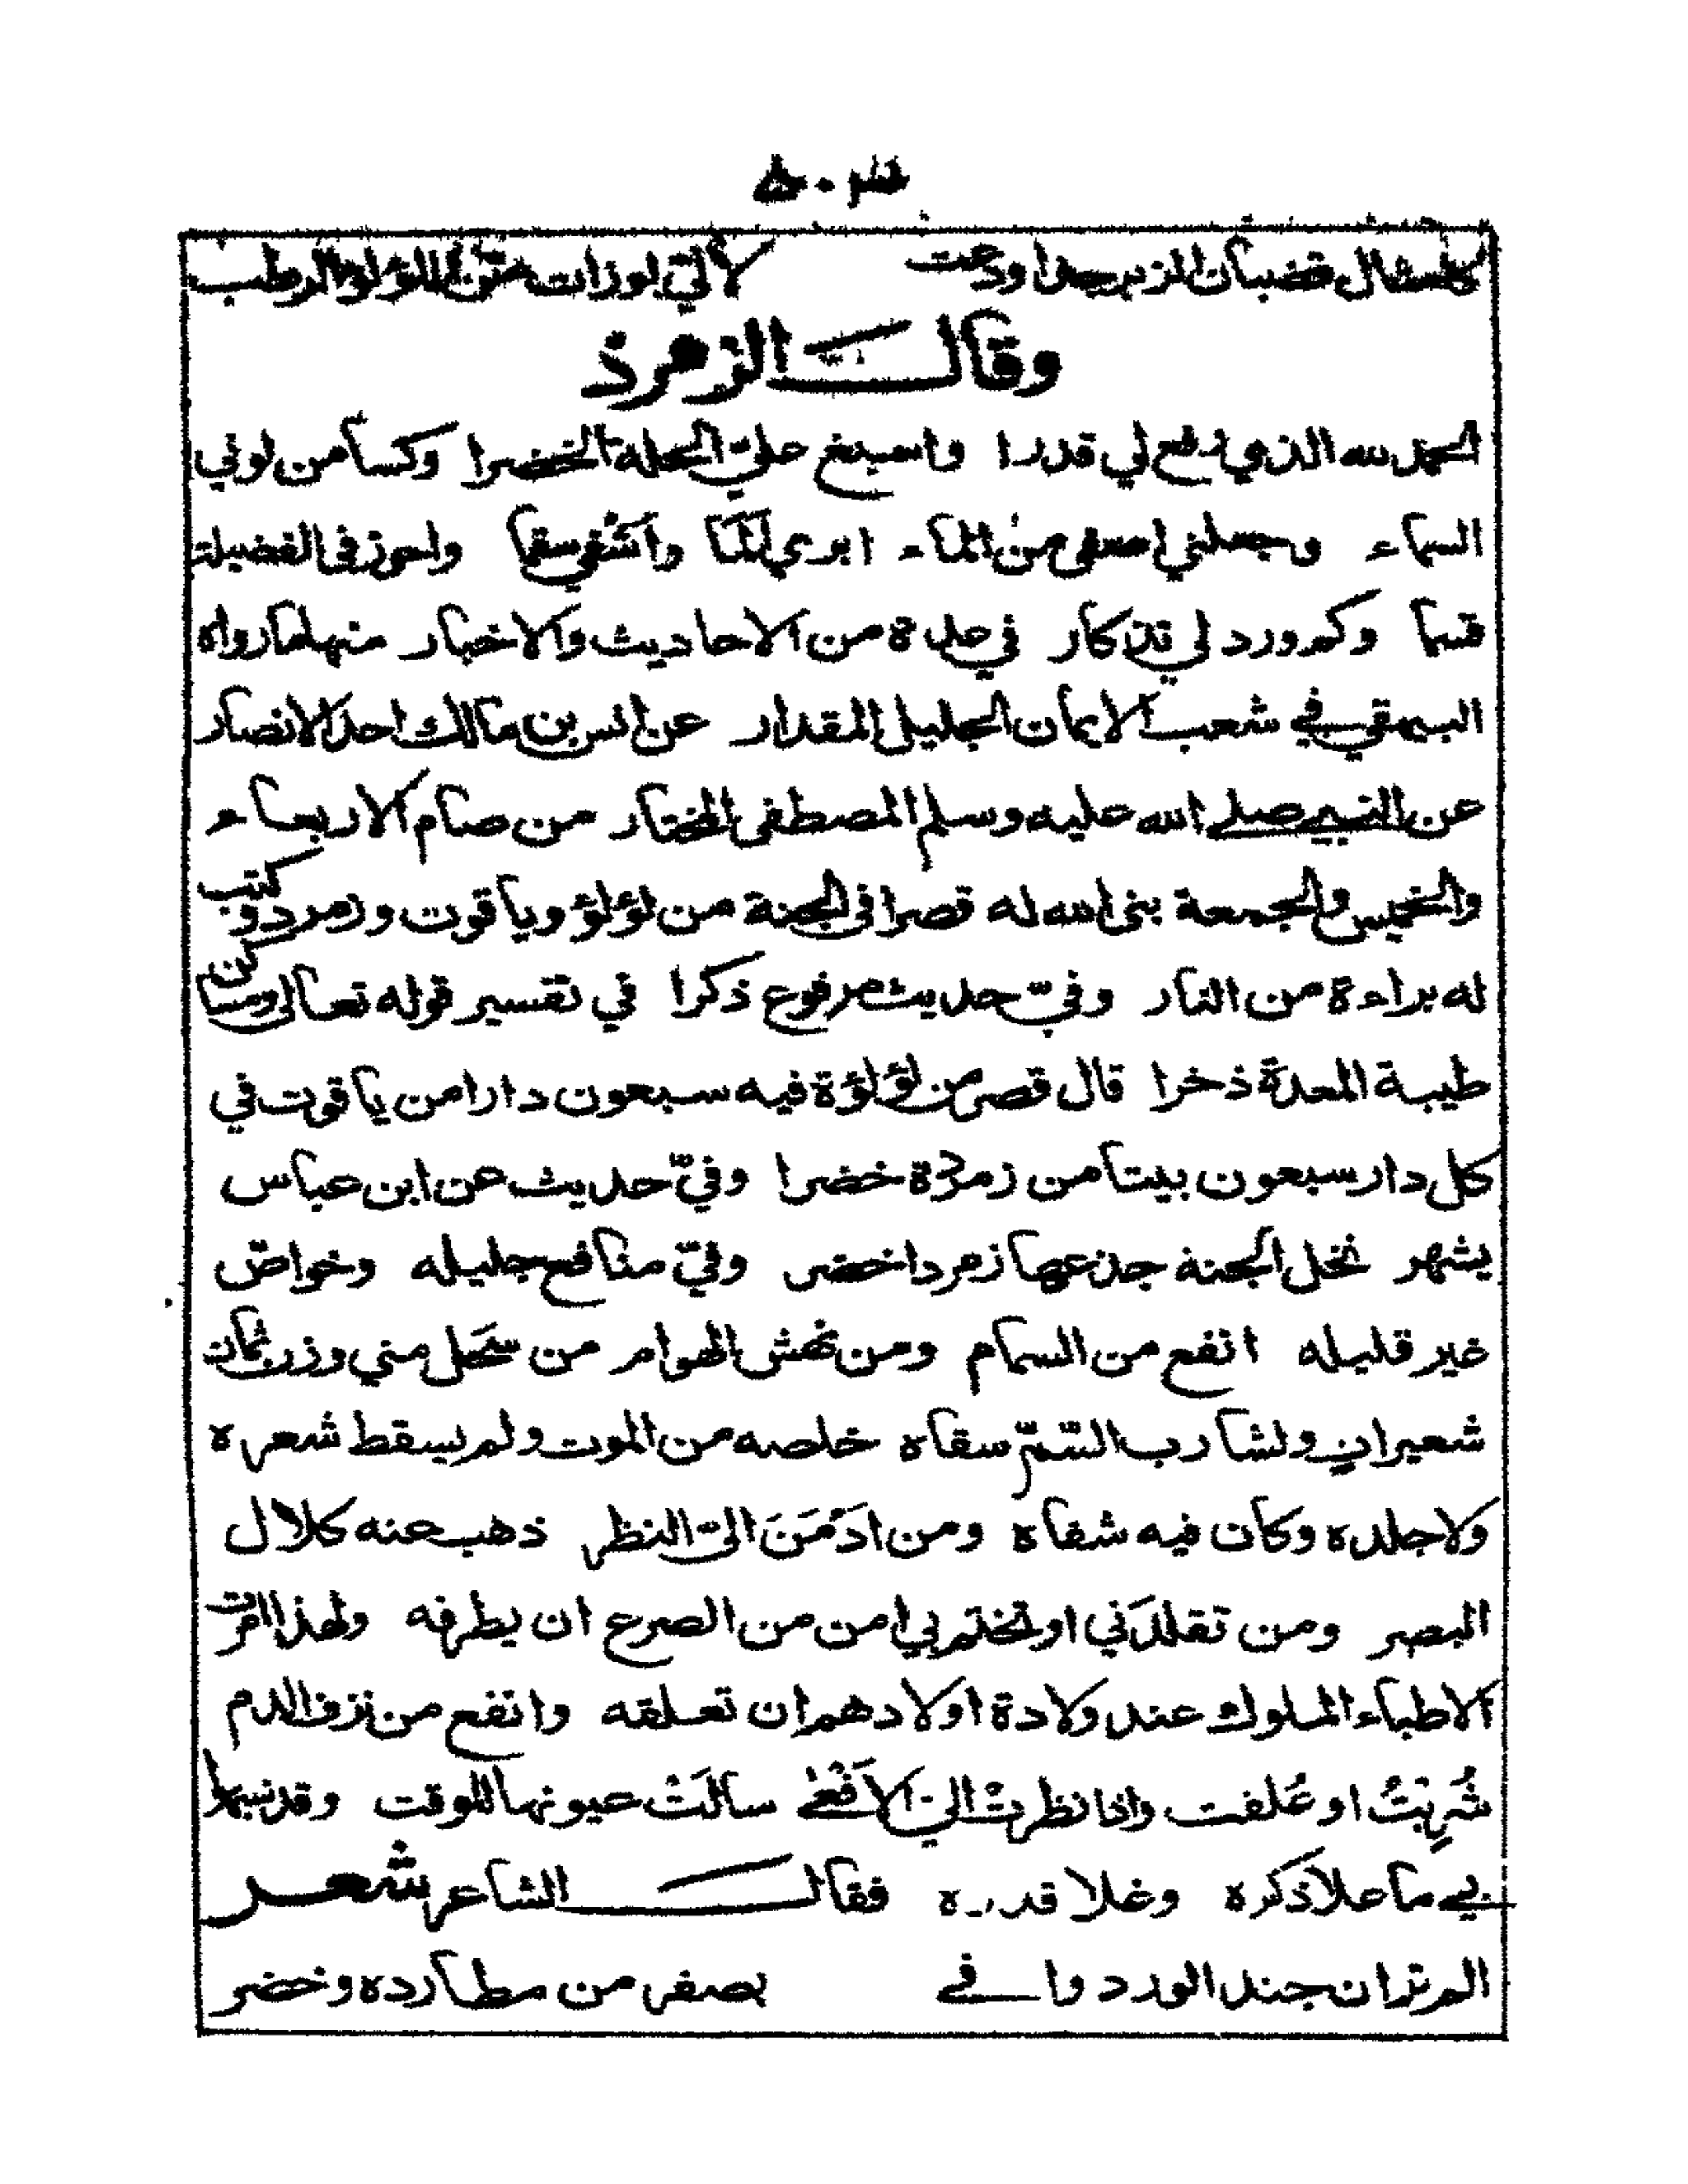 كامثال قضبان الزبرجد اودعت لآلئ لوزات من اللؤلؤ الرطب
وقالت الزمرذ
الحمد لله الذي رفع لي قدرا واسبغ عليّ الحلة الخضرا وكسا من لوني
السماء وجعلني اصفى من الماء ابري لمما وأشفي سقما واحوز في الفضيلة
قسما وكم ورد لي تذكار في عدة من الاحاديث والاخبار منها ما رواه
البيهقي في شعب الايمان الجليل المقدار عن انس بن مالك احد الانصار
عن النبي صلى الله عليه وسلم المصطفى المختار من صام الاربعاء
والخميس والجمعة بنى الله له قصرا في الجنة من لؤلؤ وياقوت وزمرد وكتب
له براءة من النار وفيّ حديث مرفوع ذكرا في تفسير قوله تعالى ومساكن
طيبة المعدة ذخرا قال قصر من لؤلؤة فيه سبعون دارا من ياقوت في
كل دار سبعون بيتا من زمردة خضرا وفيّ حديث عن ابن عباس
يشهر نخل الجنة جذعها زمرد اخضر وفيّ منافع جليله وخواصّ
غير قليله انفع من السمام ومن نهش الهوام من سَحَل مني وزن ثمان
شعيرانٍ ولشارب السّمّ سقاه خلصه من الموت ولم يسقط شعره
ولا جلده وكان فيه شفاه ومن ادْمَنَ اليّ النظر ذهب عنه كلال
البصر ومن تقلدَني او تختم بي امن من الصرع ان يطرفه ولهذا امرت
الاطباء الملوك عند ولادة اولادهم ان تعلقه وانفع من نزف الدم
شُرِبْتُ او عُلقت واذا نظرتْ اليّ الافعى سالَتْ عيونها للوقت وقد شبه
بي ما علا ذكره وغلا قدره فقال الشاعر شعر
الم تر ان جند الورد وافى بصفر من مطارده وخضر